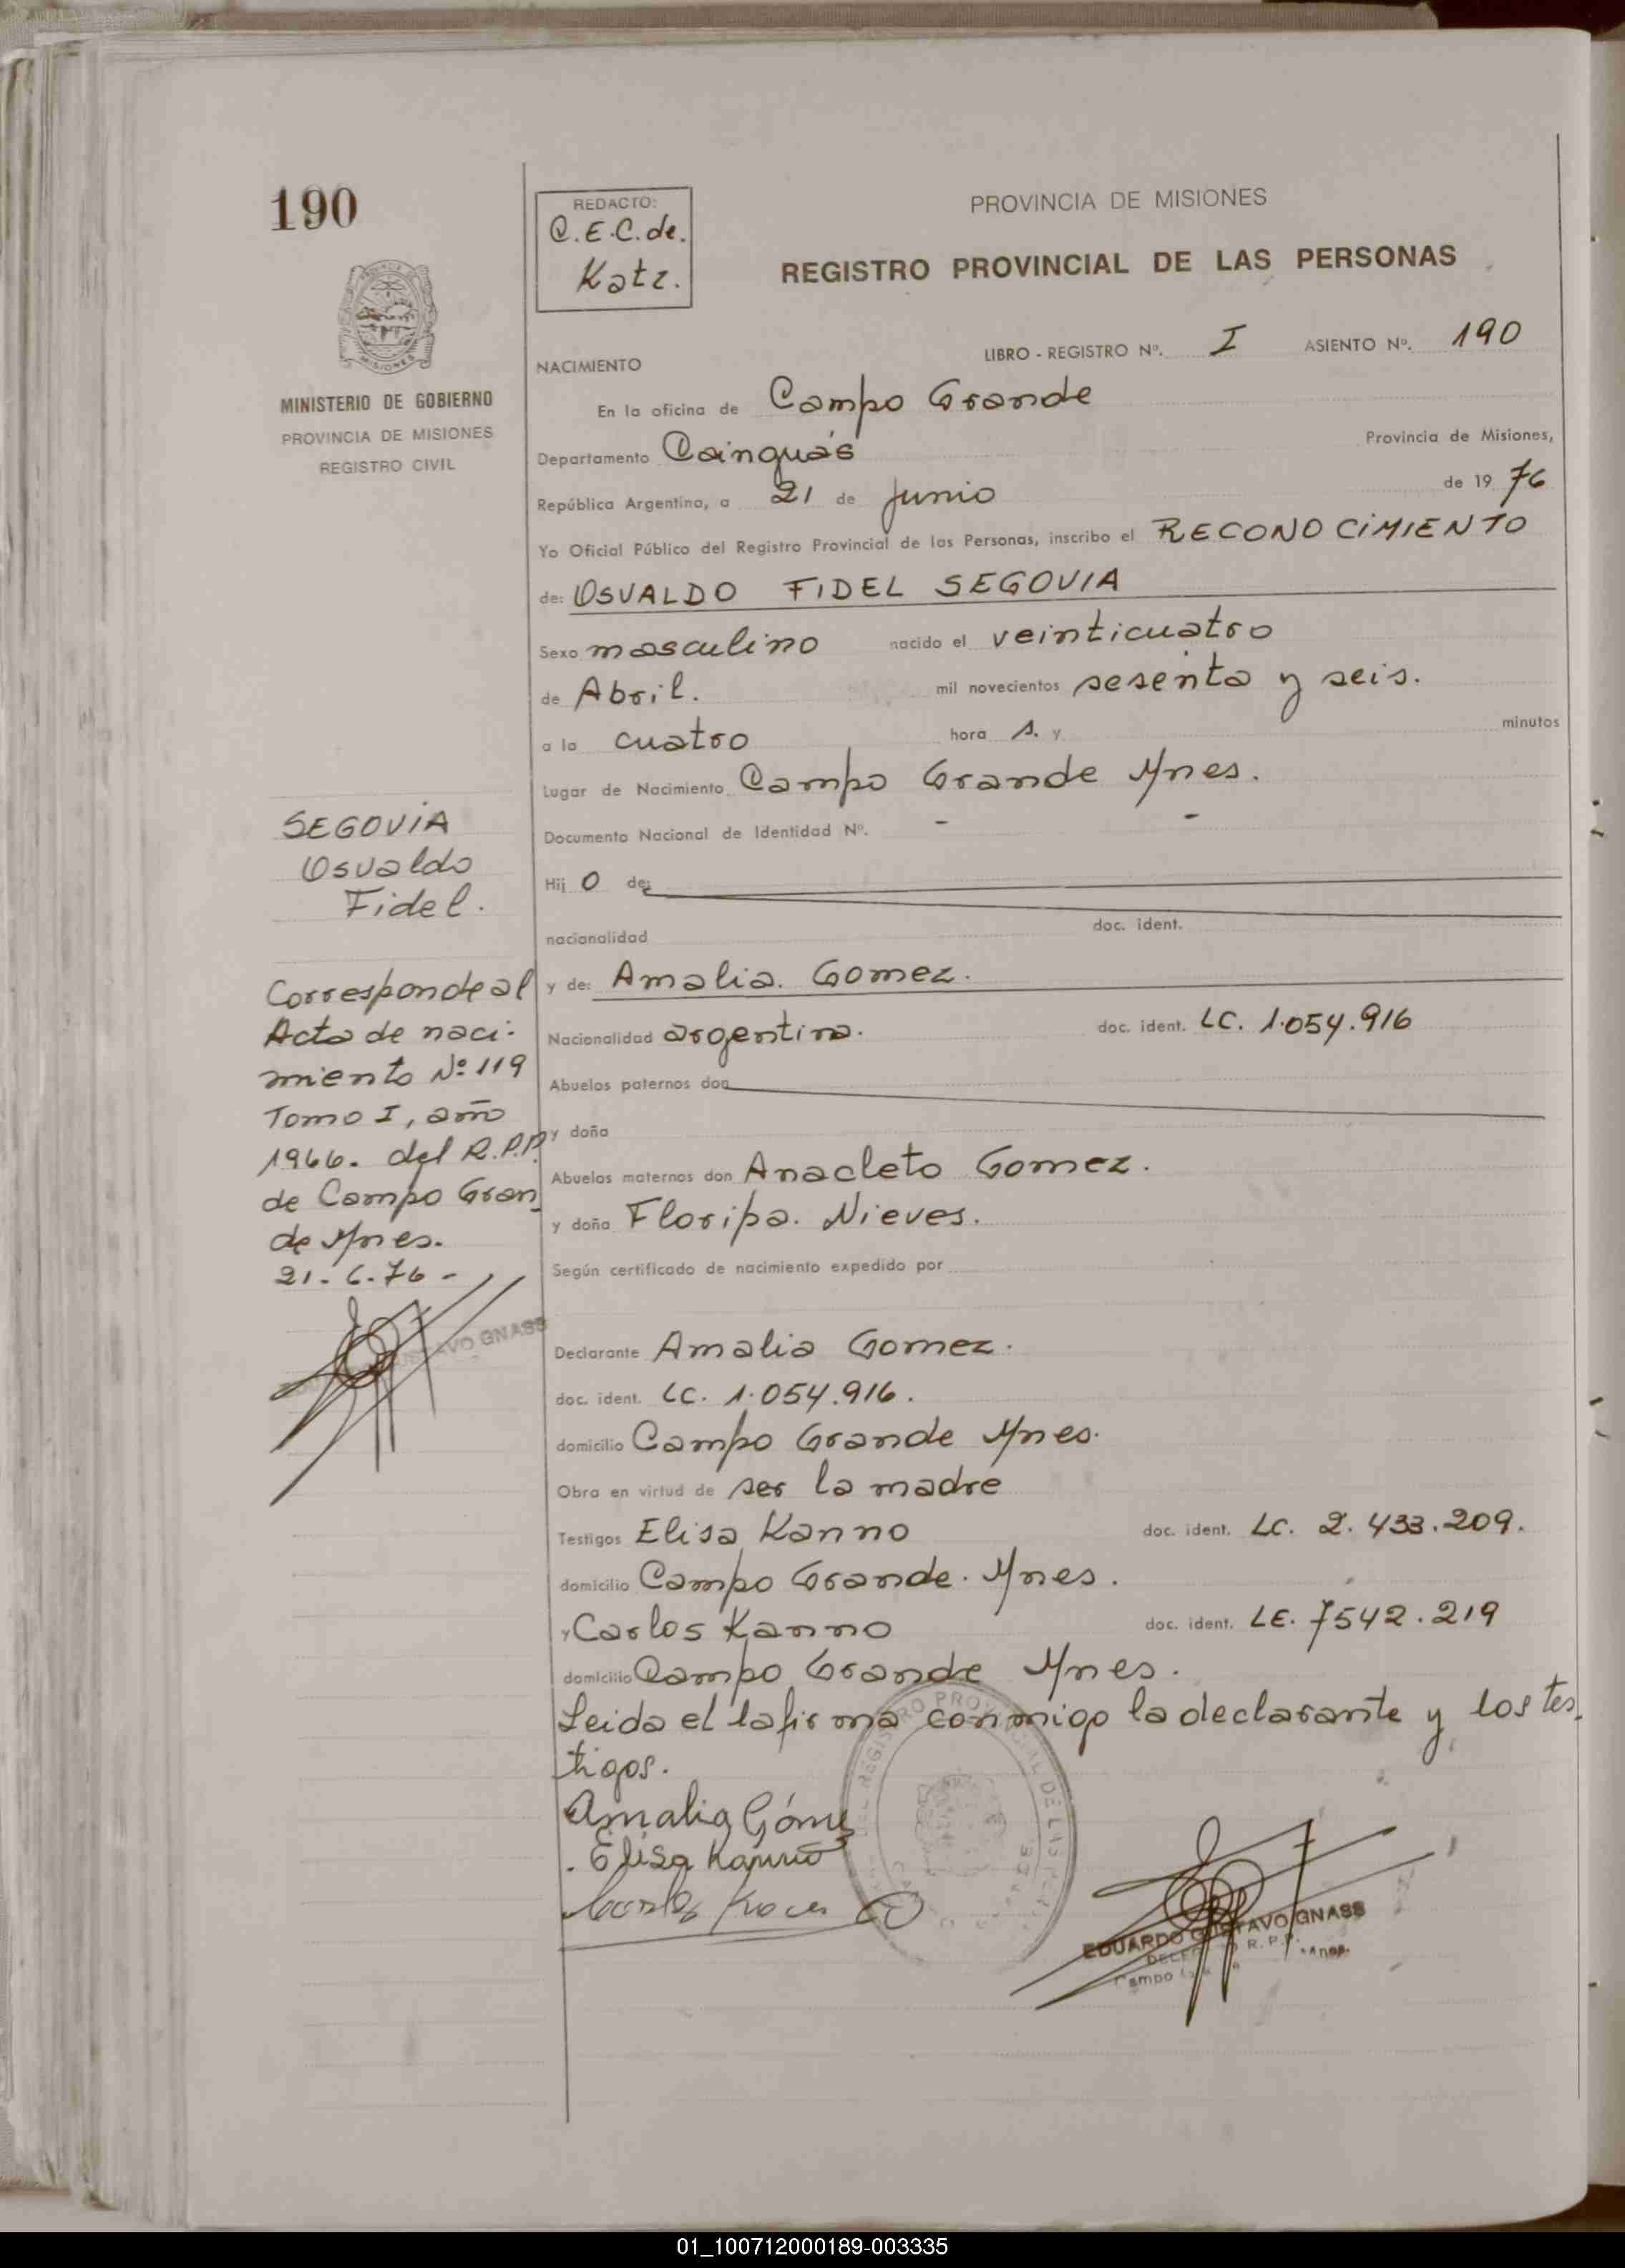 190
REDACTO:
C.E.C. de.
Katz.
PROVINCIA DE MISIONES
REGISTRO PROVINCIAL DE LAS PERSONAS
MINISTERIO DE GOBIERNO
PROVINCIA DE MISIONES
REGISTRO CIVIL
LIBRO - REGISTRO Nº. I ASIENTO Nº. 190
NACIMIENTO
En la oficina de Campo Grande
Departamento Cainguás Provincia de Misiones,
República Argentina, a 21 de junio de 19 76
Yo Oficial Público del Registro Provincial de las Personas, inscribo el RECONOCIMIENTO
de: OSVALDO FIDEL SEGOVIA
Sexo masculino nacido el veinticuatro
de Abril. mil novecientos sesenta y seis.
a la cuatro hora s. y minutos
Lugar de Nacimiento Campo Grande Mnes.
Documento Nacional de Identidad Nº. - -
Hij o de:
nacionalidad doc. ident.
y de: Amalia. Gomez.
Nacionalidad argentina. doc. ident. LC. 1.054.916
Abuelos paternos don
y doña
Abuelos maternos don Anacleto Gomez.
y doña Floripa. Nieves.
Según certificado de nacimiento expedido por
Declarante Amalia Gomez.
doc. ident. LC. 1.054.916.
domicilio Campo Grande Mnes.
Obra en virtud de ser la madre
Testigos Elisa Kanno doc. ident. LC. 2.433.209.
domicilio Campo Grande. Mnes.
y Carlos Kanno doc. ident. LE. 7542.219
domicilio Campo Grande Mnes.
Leida el la firma conmigo la declarante y los tes-
tigos.
Amalia Góme
Elisa Kanno
SEGOVIA
Osvaldo
Fidel.
Corresponde al
Acta de naci-
miento Nº 119
Tomo I, año
1966. del R.P.P.
de Campo Gran-
de Mnes.
21-6-76-
GUSTAVO GNASS
EDUARDO GUSTAVO GNASS
R.P.P.
Campo
01_100712000189-003335